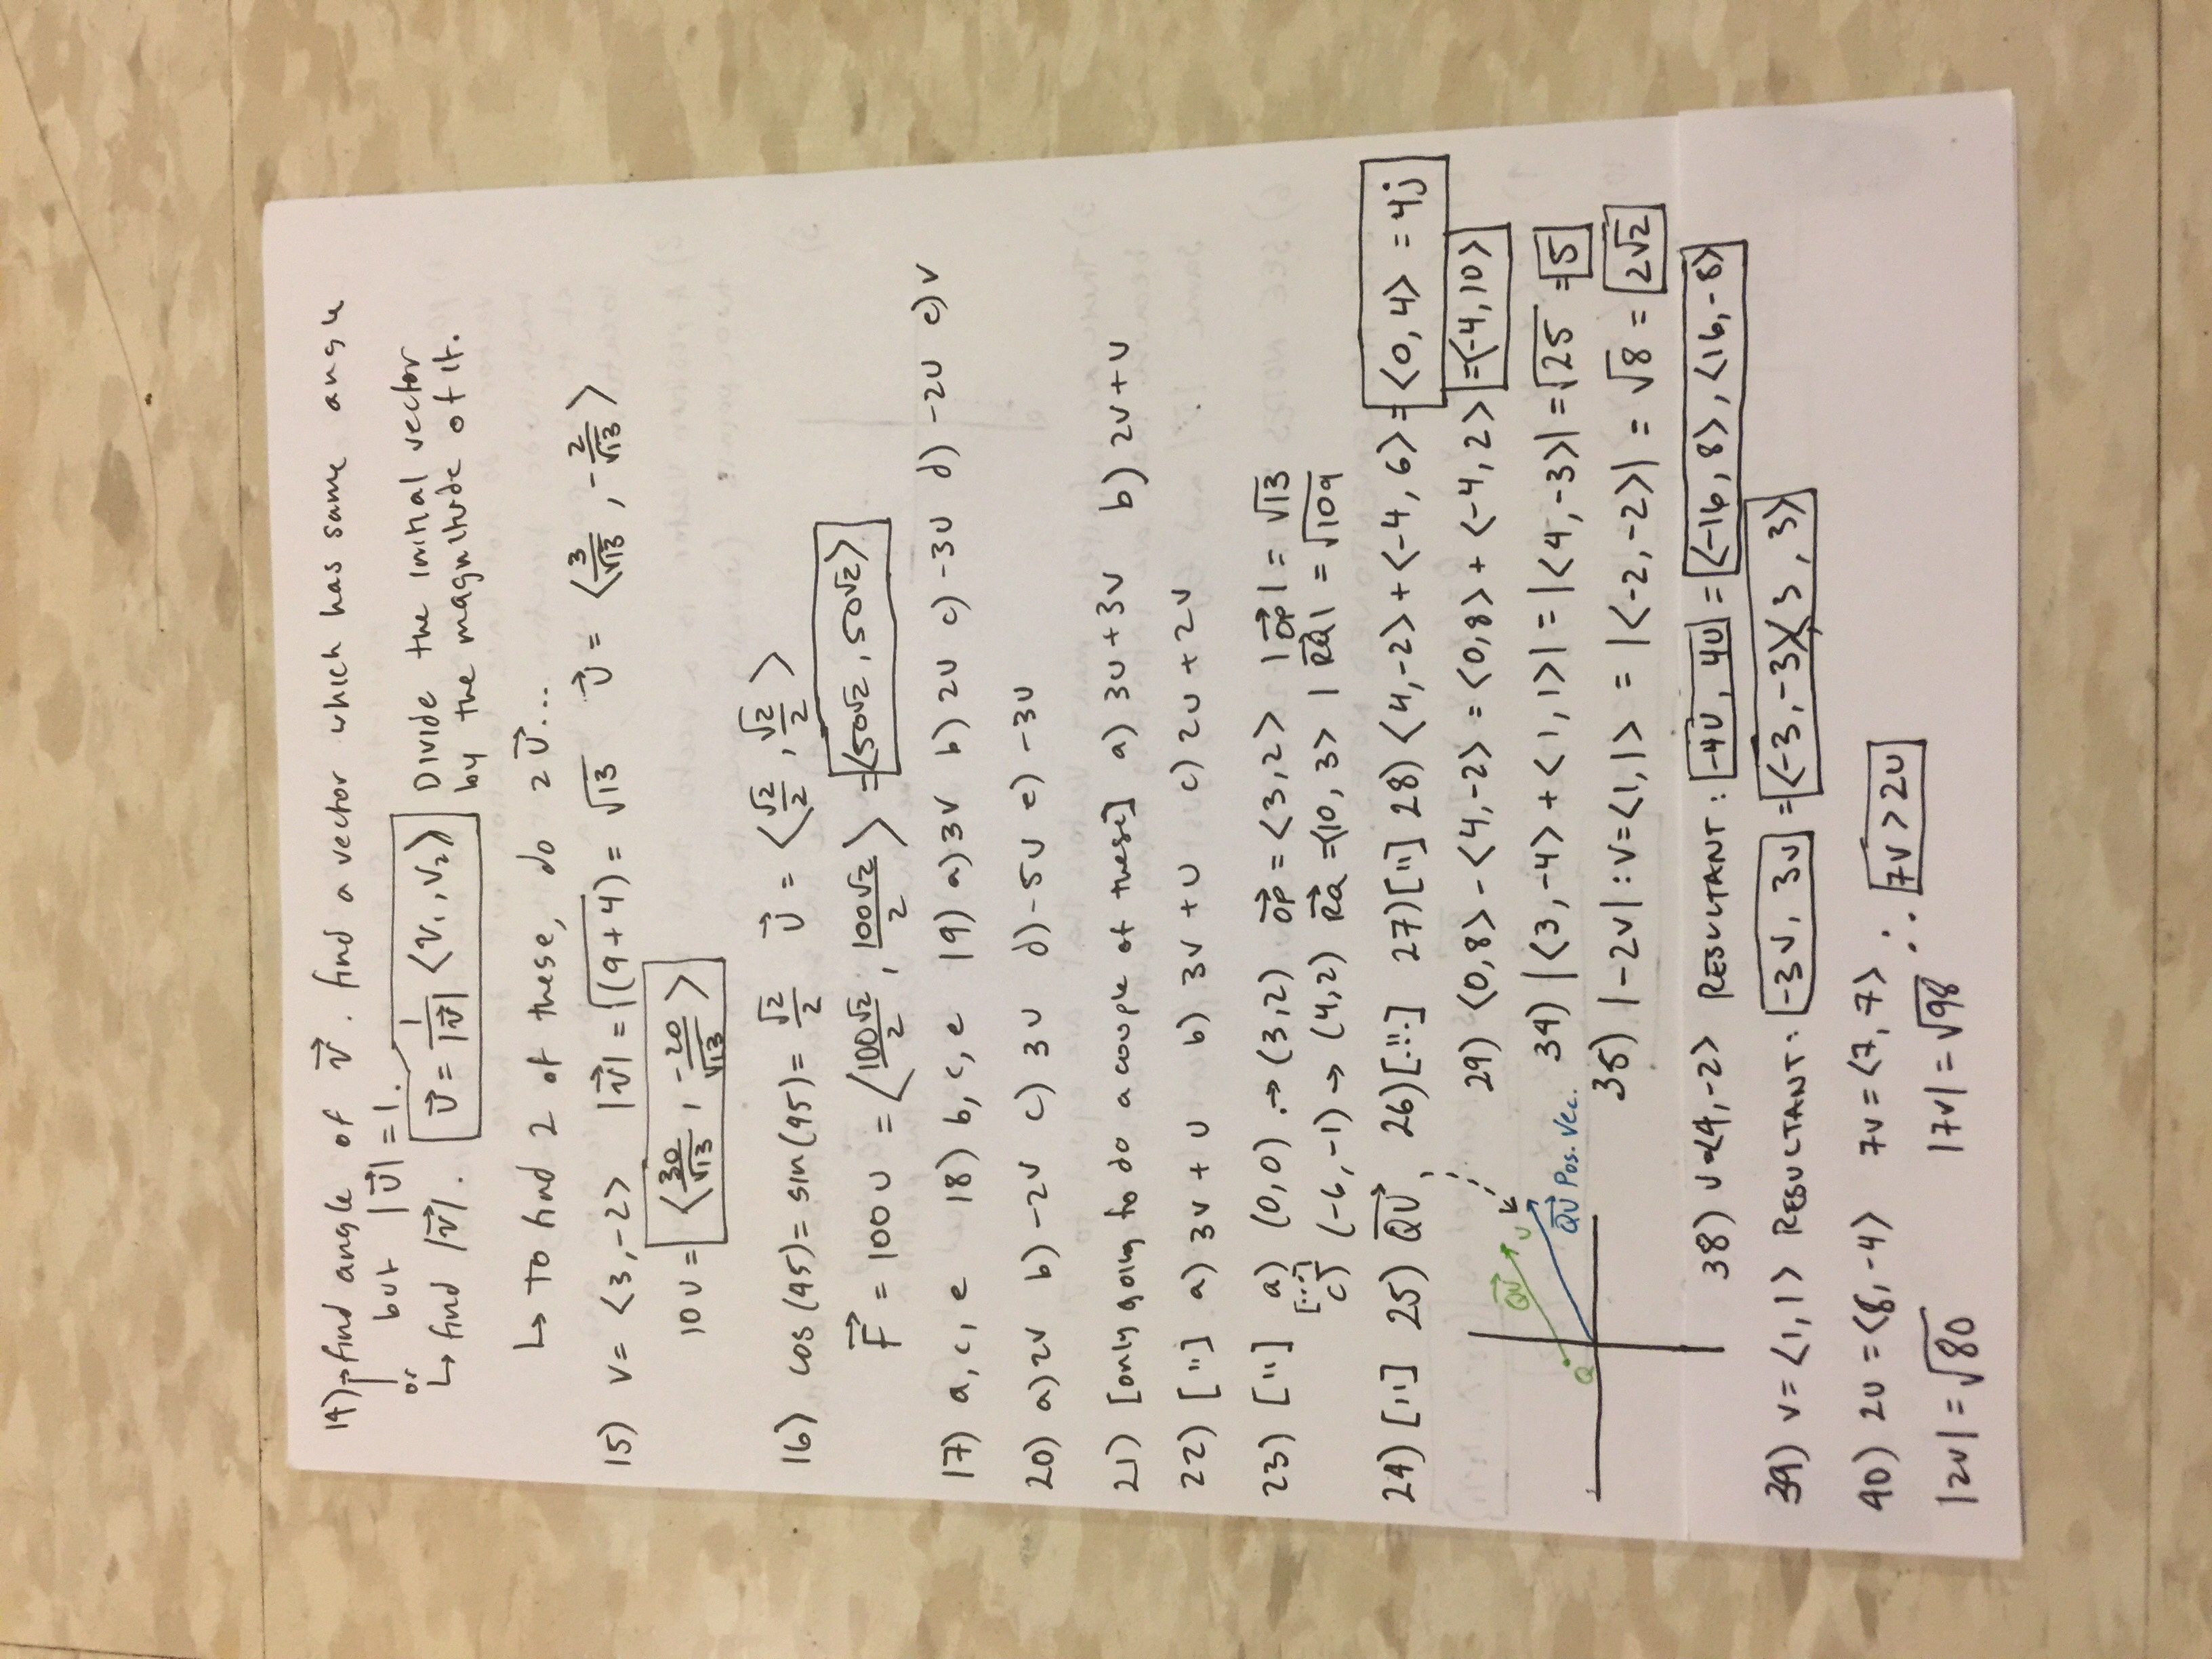 14) → find angle of v⃗. find a vector which has same angle
but |U⃗| = 1.
or
↳ find |v⃗|. U⃗ = 1/|v⃗| <v₁, v₂> Divide the initial vector
by the magnitude of it.
↳ To find 2 of these, do 2U⃗...
15) v = <3,-2> |v⃗| = √(9+4) = √13 U⃗ = <3/√13, -2/√13>
10U = <30/√13, -20/√13>
16) cos(45) = sin(45) = √2/2 U⃗ = <√2/2, √2/2>
F⃗ = 100U = <100√2/2, 100√2/2> = <50√2, 50√2>
17) a, c, e 18) b, c, e 19) a) 3v b) 2U c) -3U d) -2U e) v
20) a) 2v b) -2v c) 3U d) -5U e) -3U
21) [only going to do a couple of these] a) 3U + 3v b) 2v + U
22) ["] a) 3v + U b) 3v + U c) 2U + 2v
23) ["] a) (0,0) → (3,2) OP⃗ = <3,2> |OP⃗| = √13
[...]
c) (-6,-1) → (4,2) RQ⃗ = <10, 3> |RQ⃗| = √109
24) ["] 25) QU⃗, 26) [..."] 27) ["] 28) <4,-2> + <-4, 6> = <0, 4> = 4j
29) <0,8> - <4,-2> = <0,8> + <-4, 2> = <-4, 10>
QU⃗ U
Q
QU⃗ Pos. Vec.
34) |<3,-4> + <1, 1>| = |<4, -3>| = √25 = 5
35) |-2v| : v = <1, 1> = |<-2, -2>| = √8 = 2√2
38) U = <4, -2> RESULTANT: -4U, 4U = <-16, 8>, <16, -8>
39) v = <1, 1> RESULTANT: -3v, 3v = <-3, -3>, <3, 3>
40) 2U = <8, -4> 7v = <7, 7> ∴ 7v > 2U
|2U| = √80 |7v| = √98